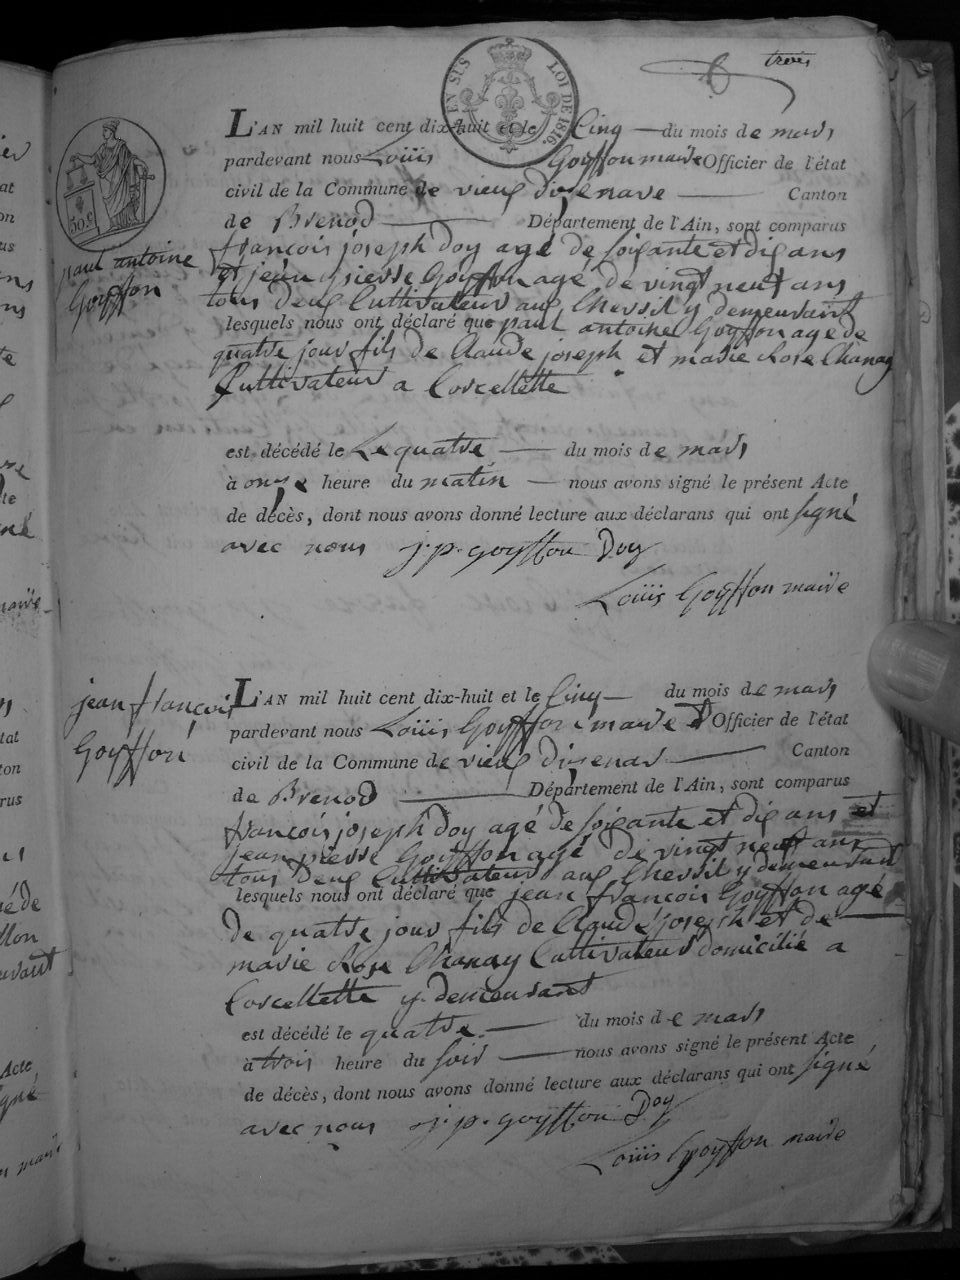 trois
EN SUS LOI DE 1816.
50.c
paul antoine
Goyffon
L'AN mil huit cent dix-huit et le Cinq du mois de mars
pardevant nous Loüis Goyffon maire Officier de l'état
civil de la Commune de vieux dizenave Canton
de Brenod Département de l'Ain, sont comparus
françois joseph Doy agé de soixante et dix ans
et jean pierre Goyffon agé de vingt neuf ans
tous deux Cultivateur aux Chessil y demeurant
lesquels nous ont déclaré que paul antoine Goyffon agé de
quatre jour fils de Claude joseph et marie Rose Chanay
Cultivateur a Corcellette
est décédé le Le quatre du mois de mars
à onze heure du matin nous avons signé le présent Acte
de décès, dont nous avons donné lecture aux déclarans qui ont signé
avec nous j. p. goyffon Doy
Loüis Goyffon maire
jean françois
Goyffon
L'AN mil huit cent dix-huit et le Cinq du mois de mars
pardevant nous Loüis Goyffon maire Officier de l'état
civil de la Commune de vieux dizenas Canton
de Brenod Département de l'Ain, sont comparus
françois joseph Doy agé de soixante et dix ans et
jean pierre Goyffon agé de vingt neuf ans
tous deux Cultivateur aux Chessil y demeurant
lesquels nous ont déclaré que jean françois Goyffon agé
de quatre jour fils de Claude joseph et de
marie Rose Chanay Cultivateur domicilié a
Corcellette y demeurant
est décédé le quatre du mois de mars
à trois heure du soir nous avons signé le présent Acte
de décès, dont nous avons donné lecture aux déclarans qui ont signé
avec nous j. p. goyffon Doy
Loüis Goyffon maire